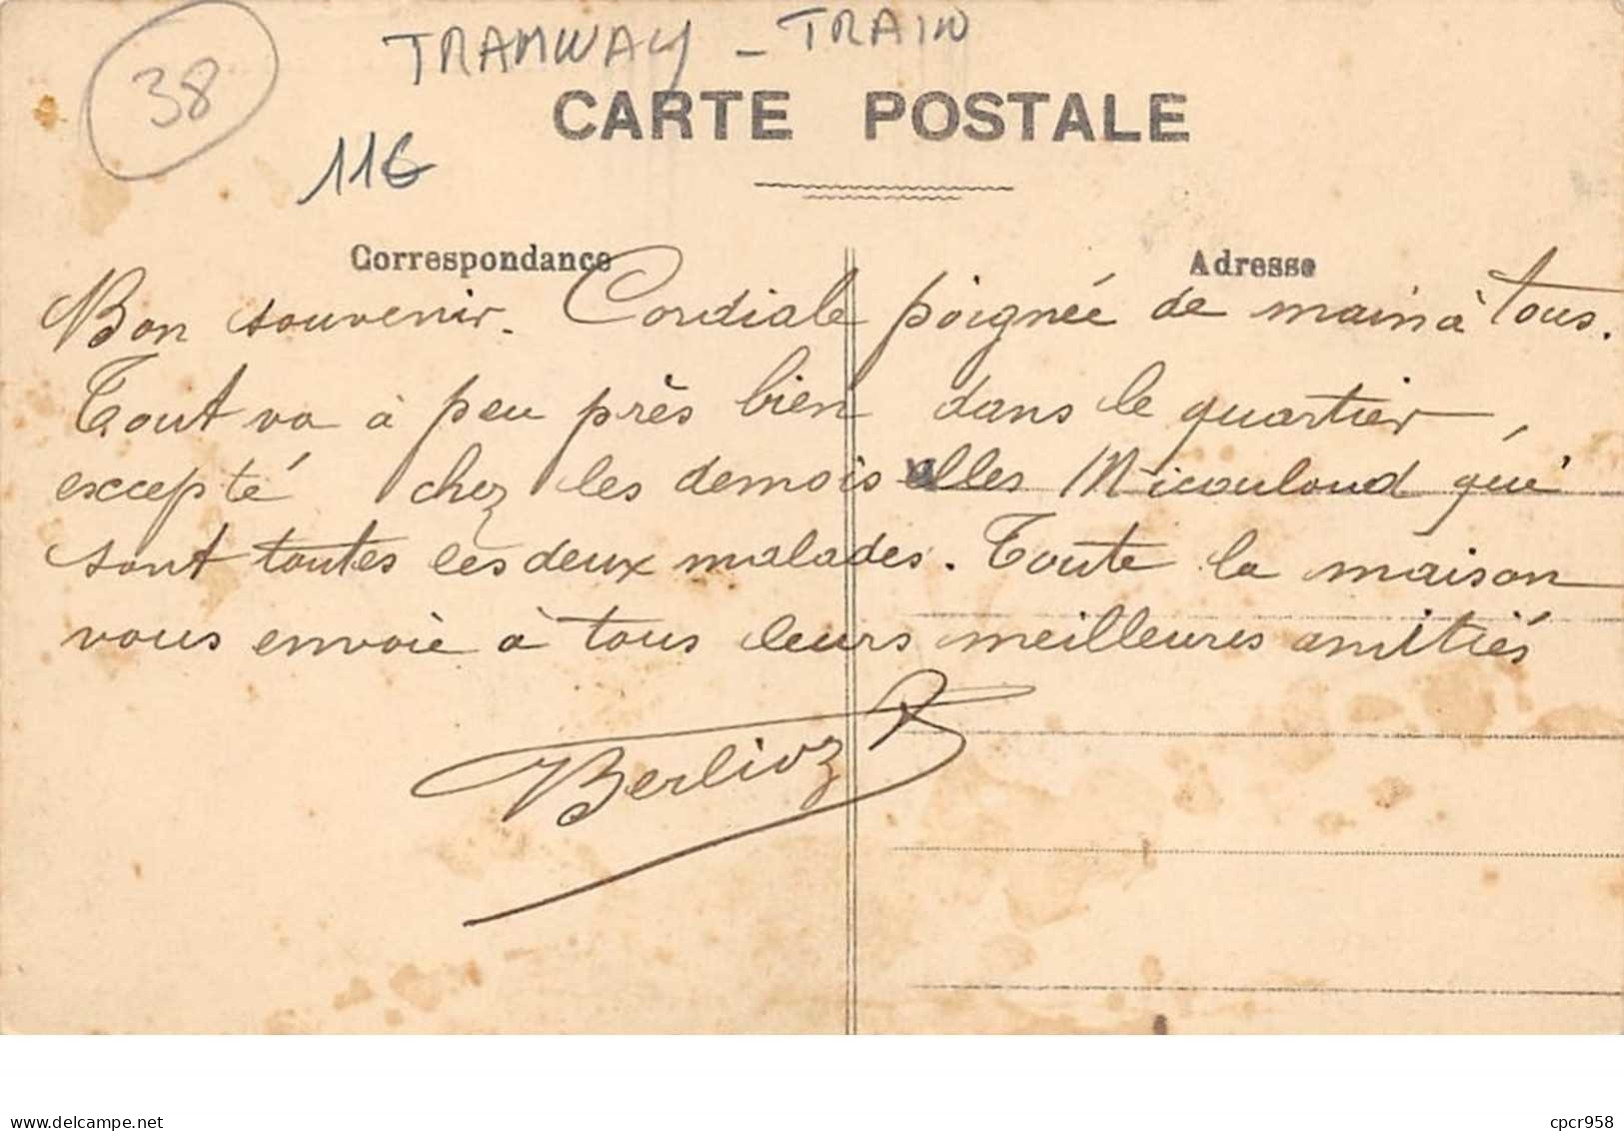 TRAMWAY - TRAIN
38
CARTE POSTALE
11€
Correspondance
Adresse
Bon souvenir. Cordiale poignée de main à tous.
Tout va à peu près bien dans le quartier,
excepté chez les demoiselles Micouloud qui
sont toutes les deux malades. Toute la maison
vous envoie à tous leurs meilleures amitiés
Berlioz
www.delcampe.net
cpcr958